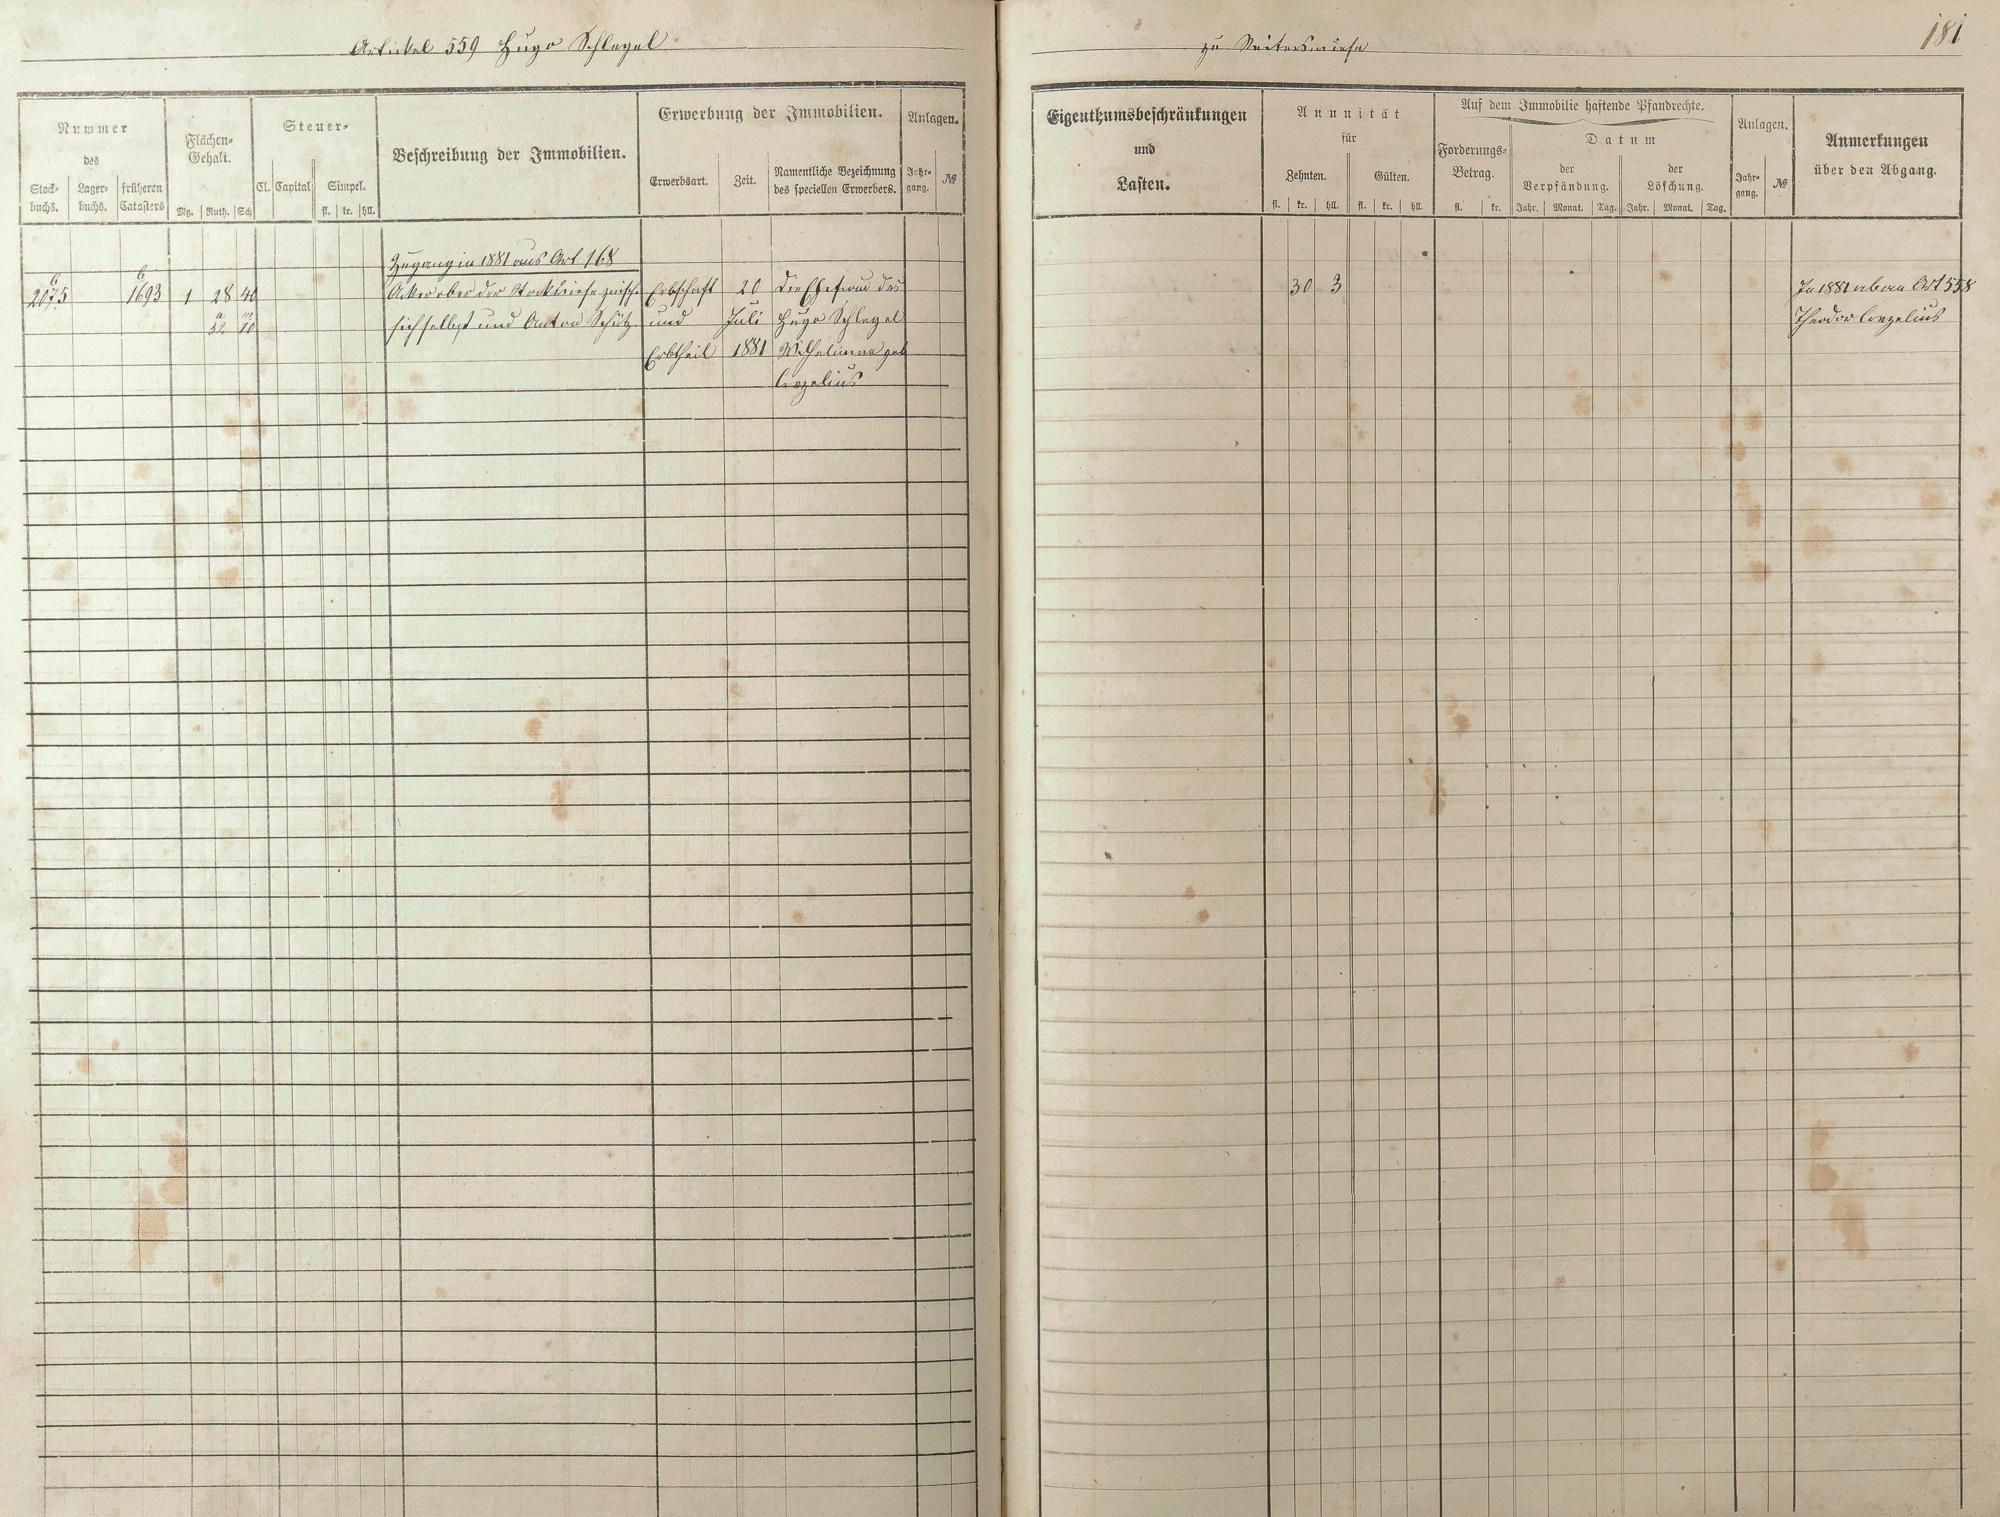 Artickel 559 Hugo Schlegel
zu Reiterswiese
181
Nummer
des
Stock-
buchs.
Lager-
buchs.
früheren
Catasters
Flächen-
Gehalt.
Mg. Ruth. Sch
Steuer-
Cl. Capital Simpel.
fl. kr. hll.
Beschreibung der Immobilien.
Erwerbung der Immobilien.
Erwerbsart. Zeit.
Namentliche Bezeichnung
des speciellen Erwerbers.
Anlagen.
Jahr-
gang.
№
Eigenthumsbeschränkungen
und
Lasten.
Annuität
für
Zehnten. Gülten.
fl. kr. hll. fl. kr. hll.
Auf dem Immobilie haftende Pfandrechte.
Forderungs-
Betrag.
fl. kr.
Datum
der
Verpfändung.
der
Löschung.
Jahr. Monat. Tag. Jahr. Monat. Tag.
Anlagen.
Jahr-
gang.
№
Anmerkungen
über den Abgang.
Zugang in 1881 aus Art 168
2075 1693 1 28 40 Acker ober der Stockwiese zwisch. Erbschaft 20 Die Ehefrau des 30 3 In 1881 Art 558
32 10 sich selbst und Anton Schütz und Juli Hugo Schlegel Theodor Corzelius
Erbtheil 1881 Wilhelmine geb
Corzelius